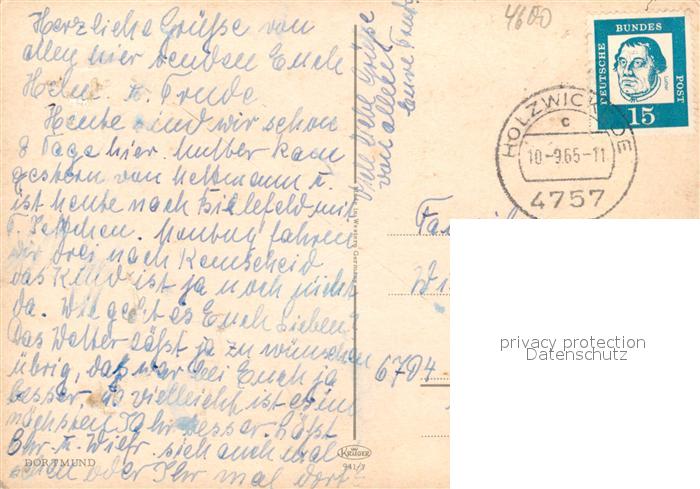 Herzliche Grüße von
allen hier senden Euch
Helm. u. Trude.
Heute sind wir schon
8 Tage hier. Mutter kam
gestern von Hettmann u.
ist heute nach Bielefeld mit
T. Montag fahren
wir drei nach Remscheid
das Kind ist ja noch nicht
da. Wie geht es Euch Lieben?
Das Wetter läßt ja zu wünschen
übrig, das war bei Euch ja
besser, vielleicht ist es im
nächsten Jahr besser. Läßt
Ihr u. sich auch mal
sehen oder Ihr mal dort
DORTMUND
Viele liebe Grüße
von allen
Eure Trude
4600
DEUTSCHE BUNDES POST
Luther
15
HOLZWICKEDE
c
10.-9.65-11
4757
Fa
Wi
6704
privacy protection
Datenschutz
in Western Germany
KRÜGER
941/7